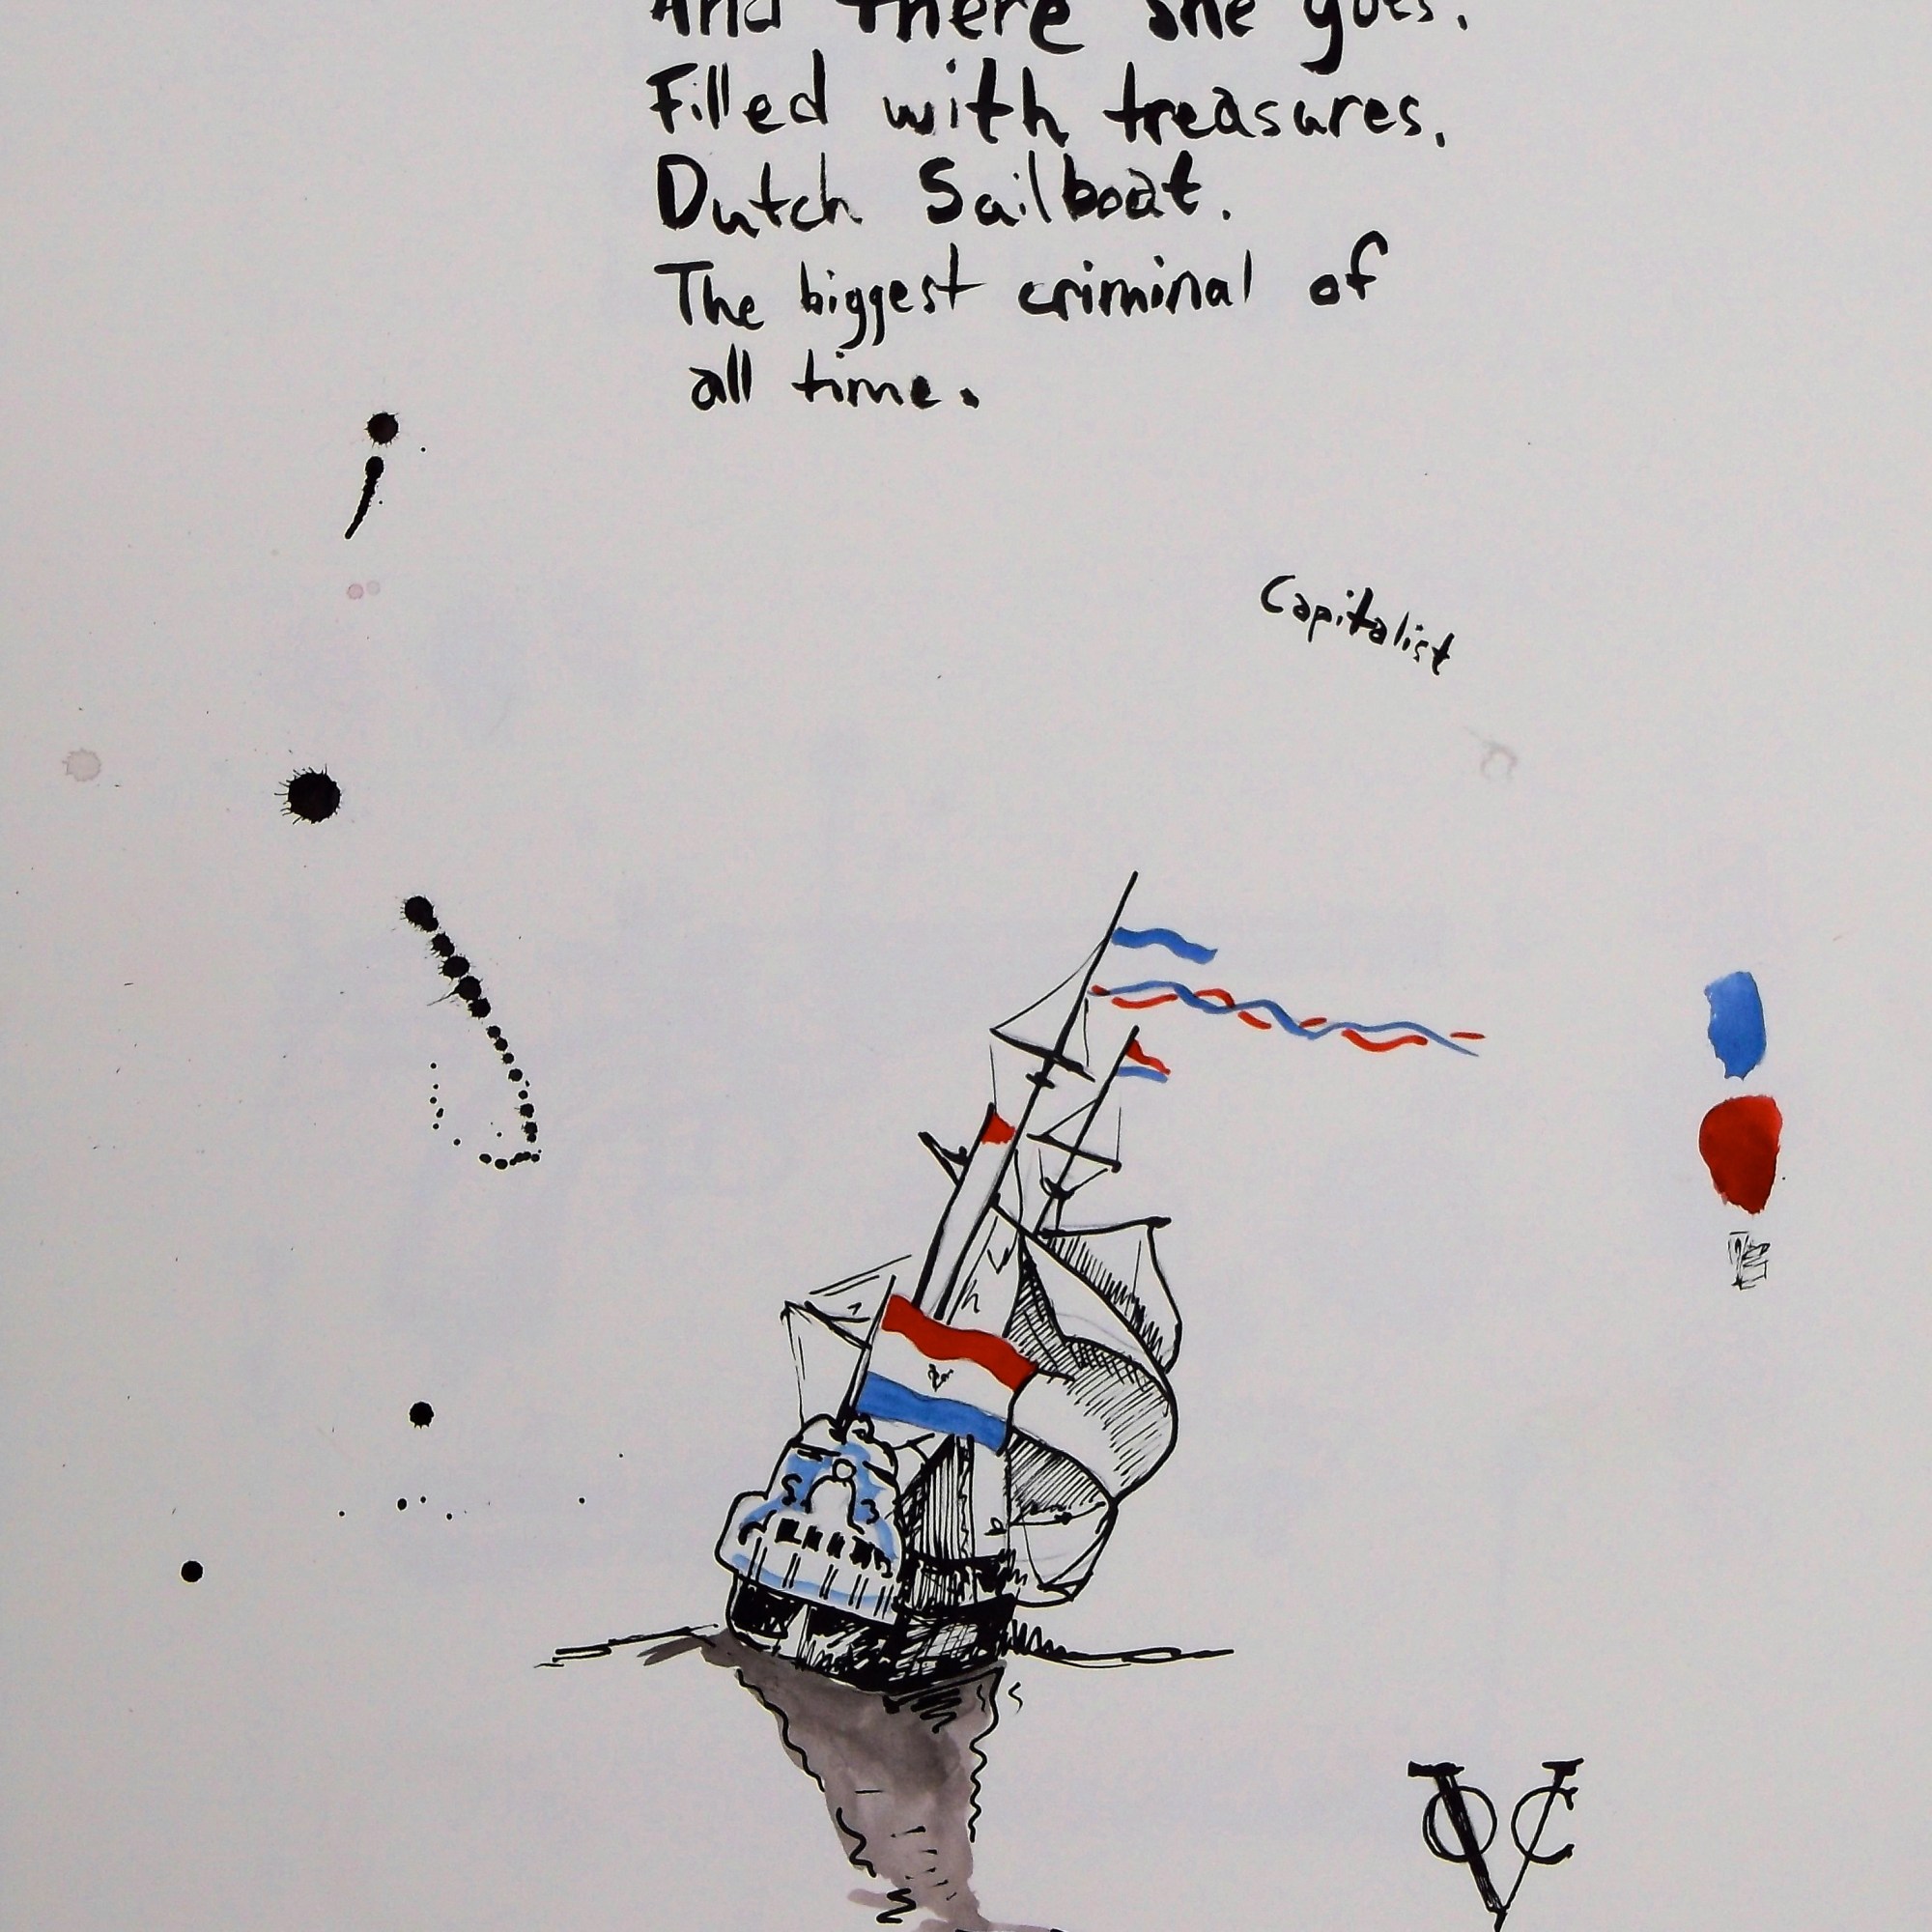 And there she goes.
Filled with treasures.
Dutch Sailboat.
The biggest criminal of
all time.
Capitalist
VOC